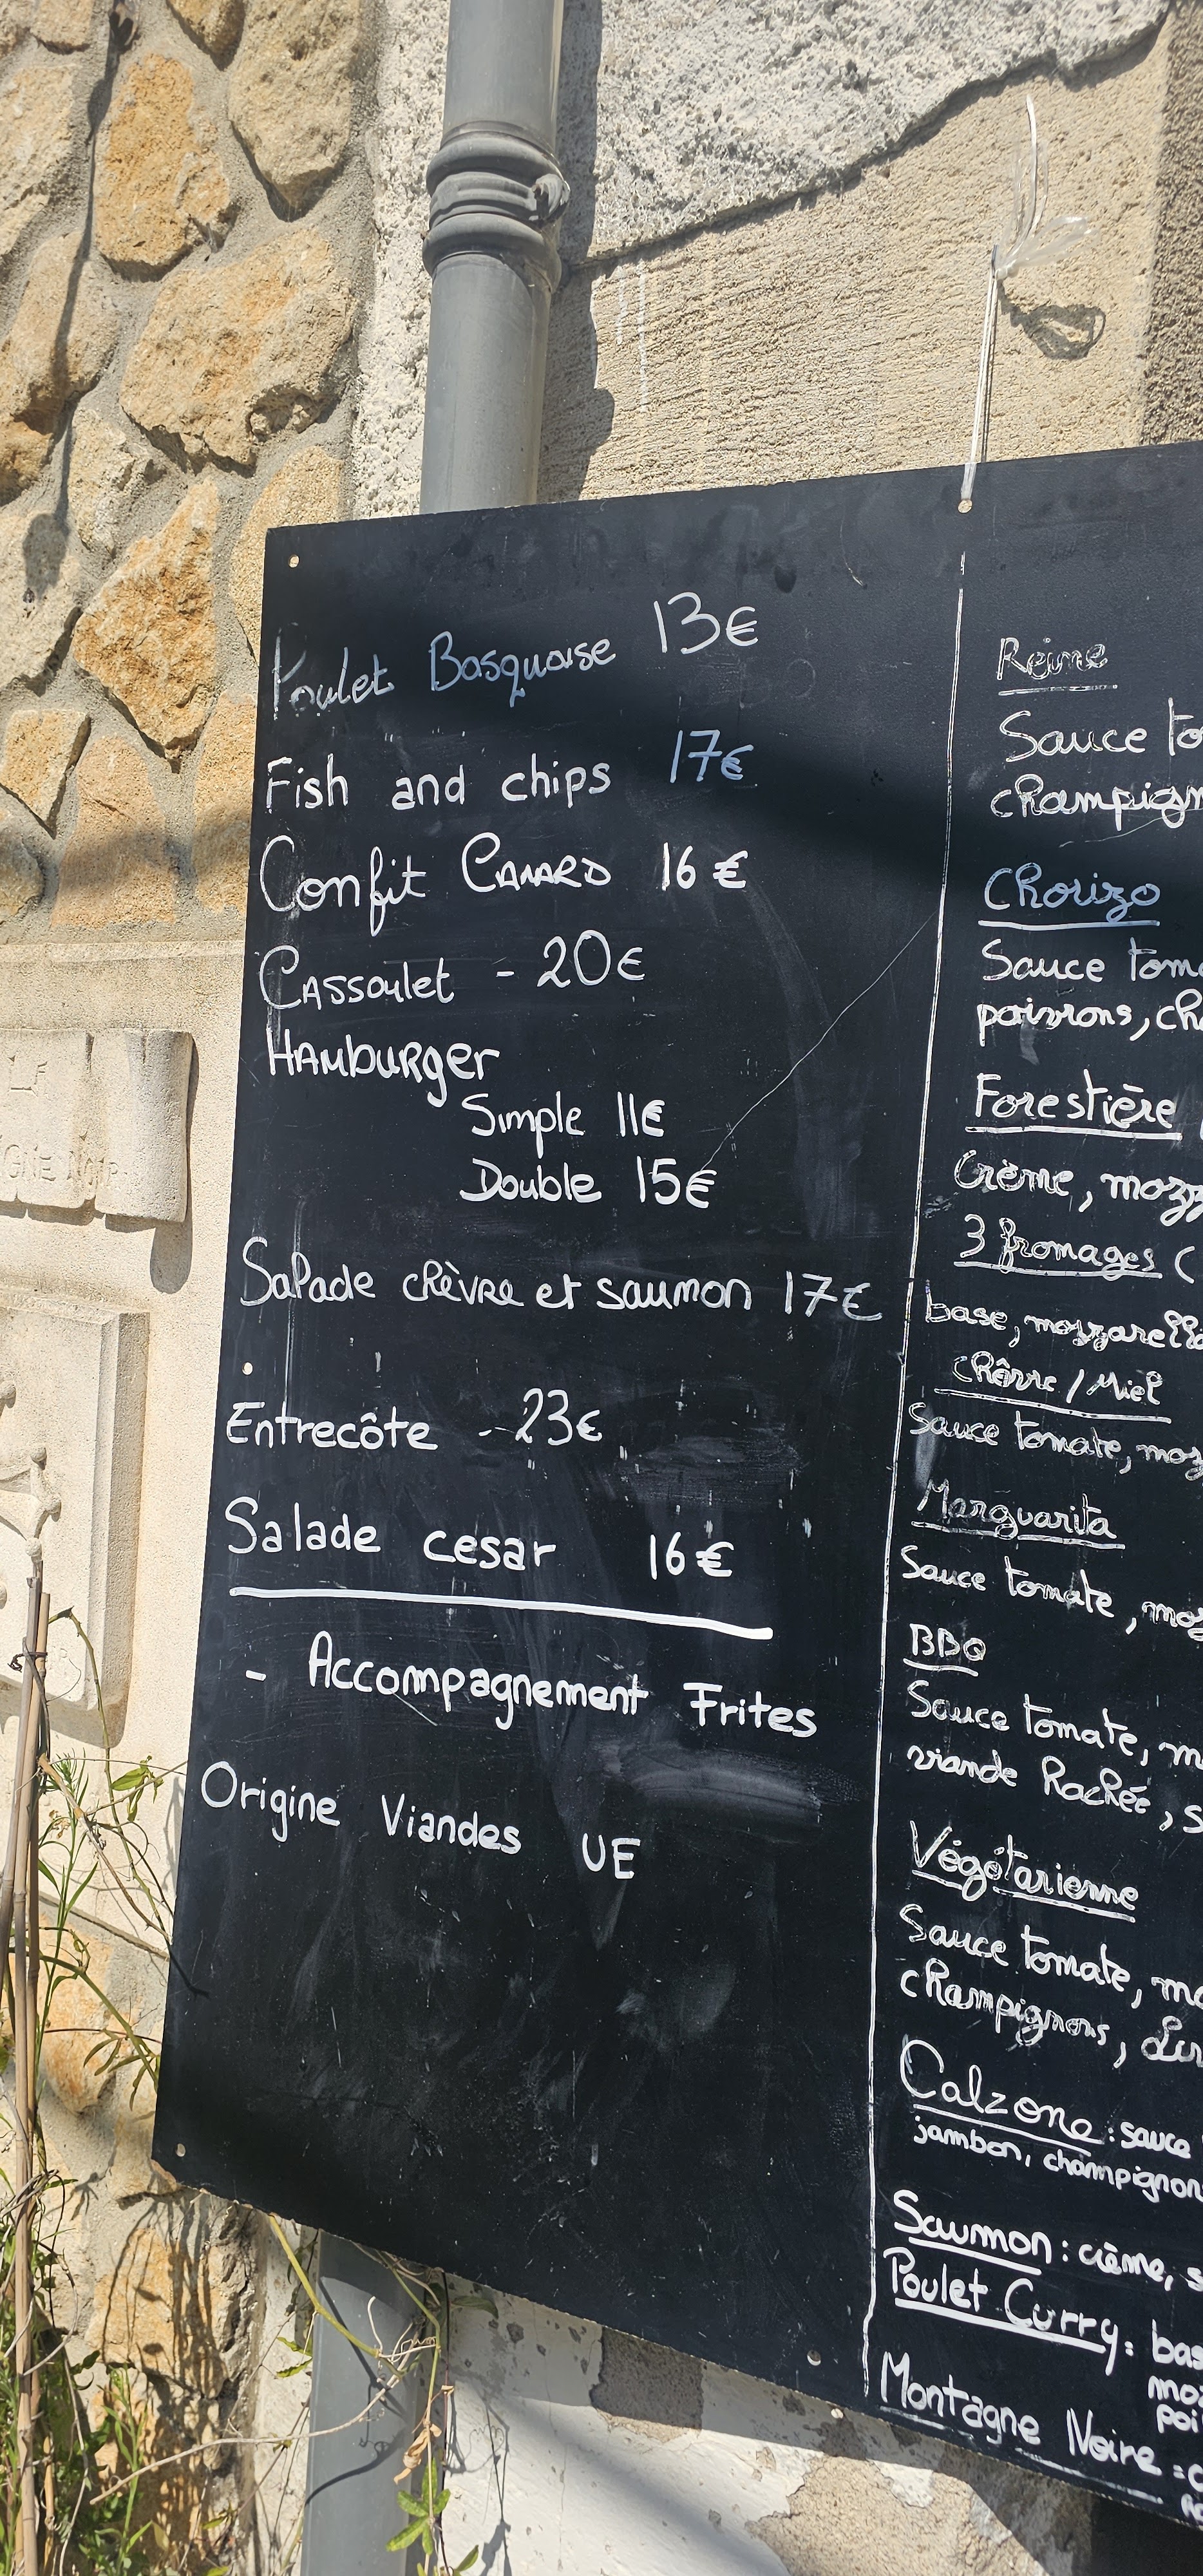 Poulet Basquaise 13€
Fish and chips 17€
Confit CANARD 16€
CAssoulet - 20€
HAmbuRger
Simple 11€
Double 15€
Salade chèvre et saumon 17€
Entrecôte - 23€
Salade cesar 16€
- Accompagnement Frites
Origine Viandes UE
Reine
Sauce to
champign
Chorizo
Sauce toma
poivrons, ch
Forestière
Crème, mozz
3 fromages (
base, mozzarella
Chêvre / Miel
Sauce tomate, moz
Marguarita
Sauce tomate, moz
BBQ
Sauce tomate, m
viande hachée, s
Végétarienne
Sauce tomate, mo
champignons,
Calzone : sauce
jambon, champignon
Saumon : crème, s
Poulet Curry : bas
mo
poi
Montagne Noire : c